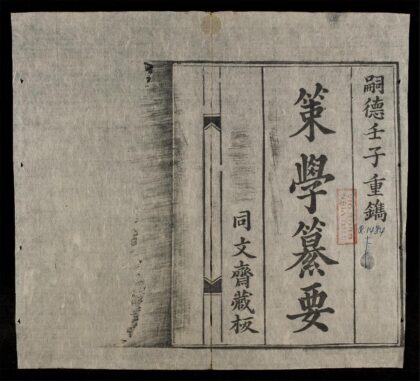 嗣德壬子重鐫
策學纂要
同文齋藏板